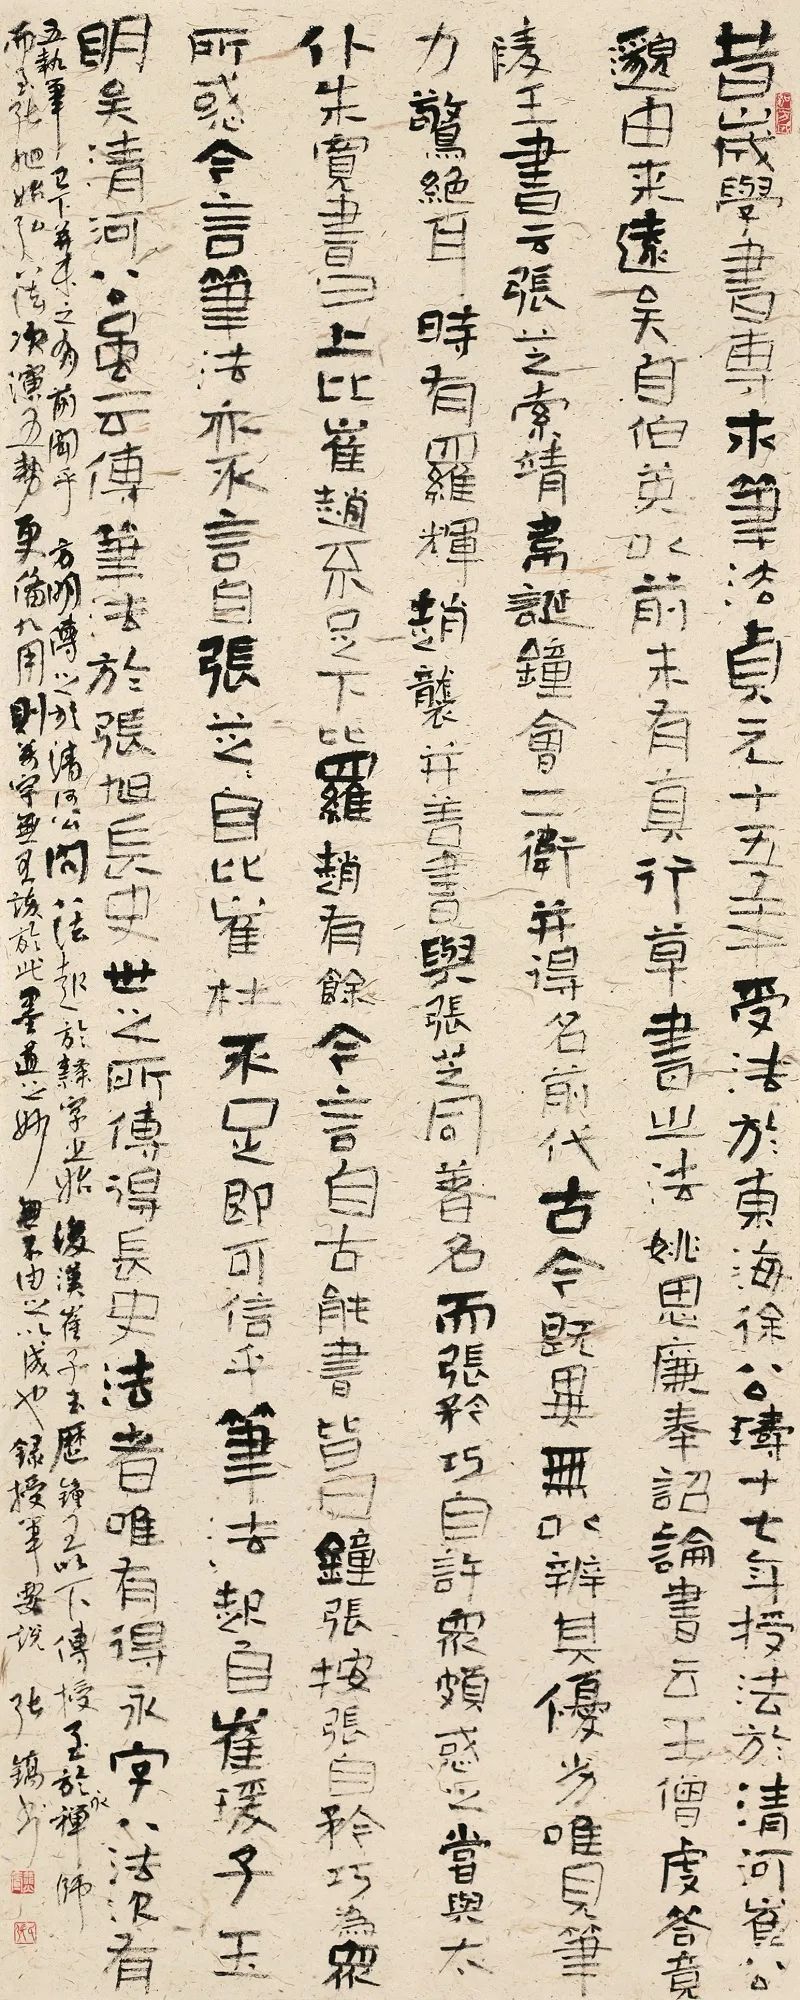 昔歲學書專求筆法貞元十五年受法於東海徐公璹十七年授法於清河崔公
邈由來遠矣自伯英以前未有真行草書之法姚思廉奉詔論書云王僧虔答竟
陵王書云張芝索靖韋誕鐘會二衛并得名前代古今既異無以辨其優劣唯見筆
力驚絕耳時有羅暉趙襲并善書與張芝同著名而張矜巧自許眾頗惑之嘗與太
仆朱寬書曰上比崔趙不足下比羅趙有餘今言自古能書皆曰鐘張按張自矜巧為眾
所惑今言筆法亦不言自張芝自比崔杜不足即可信乎筆法起自崔瑗子玉
明矣清河公雖云傳筆法於張旭長史世之所傳得長史法者唯有得永字八法次有
五執筆已下并未之有前聞乎方明傳之於清河公問八法起於隸字之始後漢崔子玉歷鐘王以下傳授至於永禪師
而至張旭始弘八法次演五勢更備九用則萬字無不該於此墨道之妙無不由之以成也錄授筆要說 張鎬書